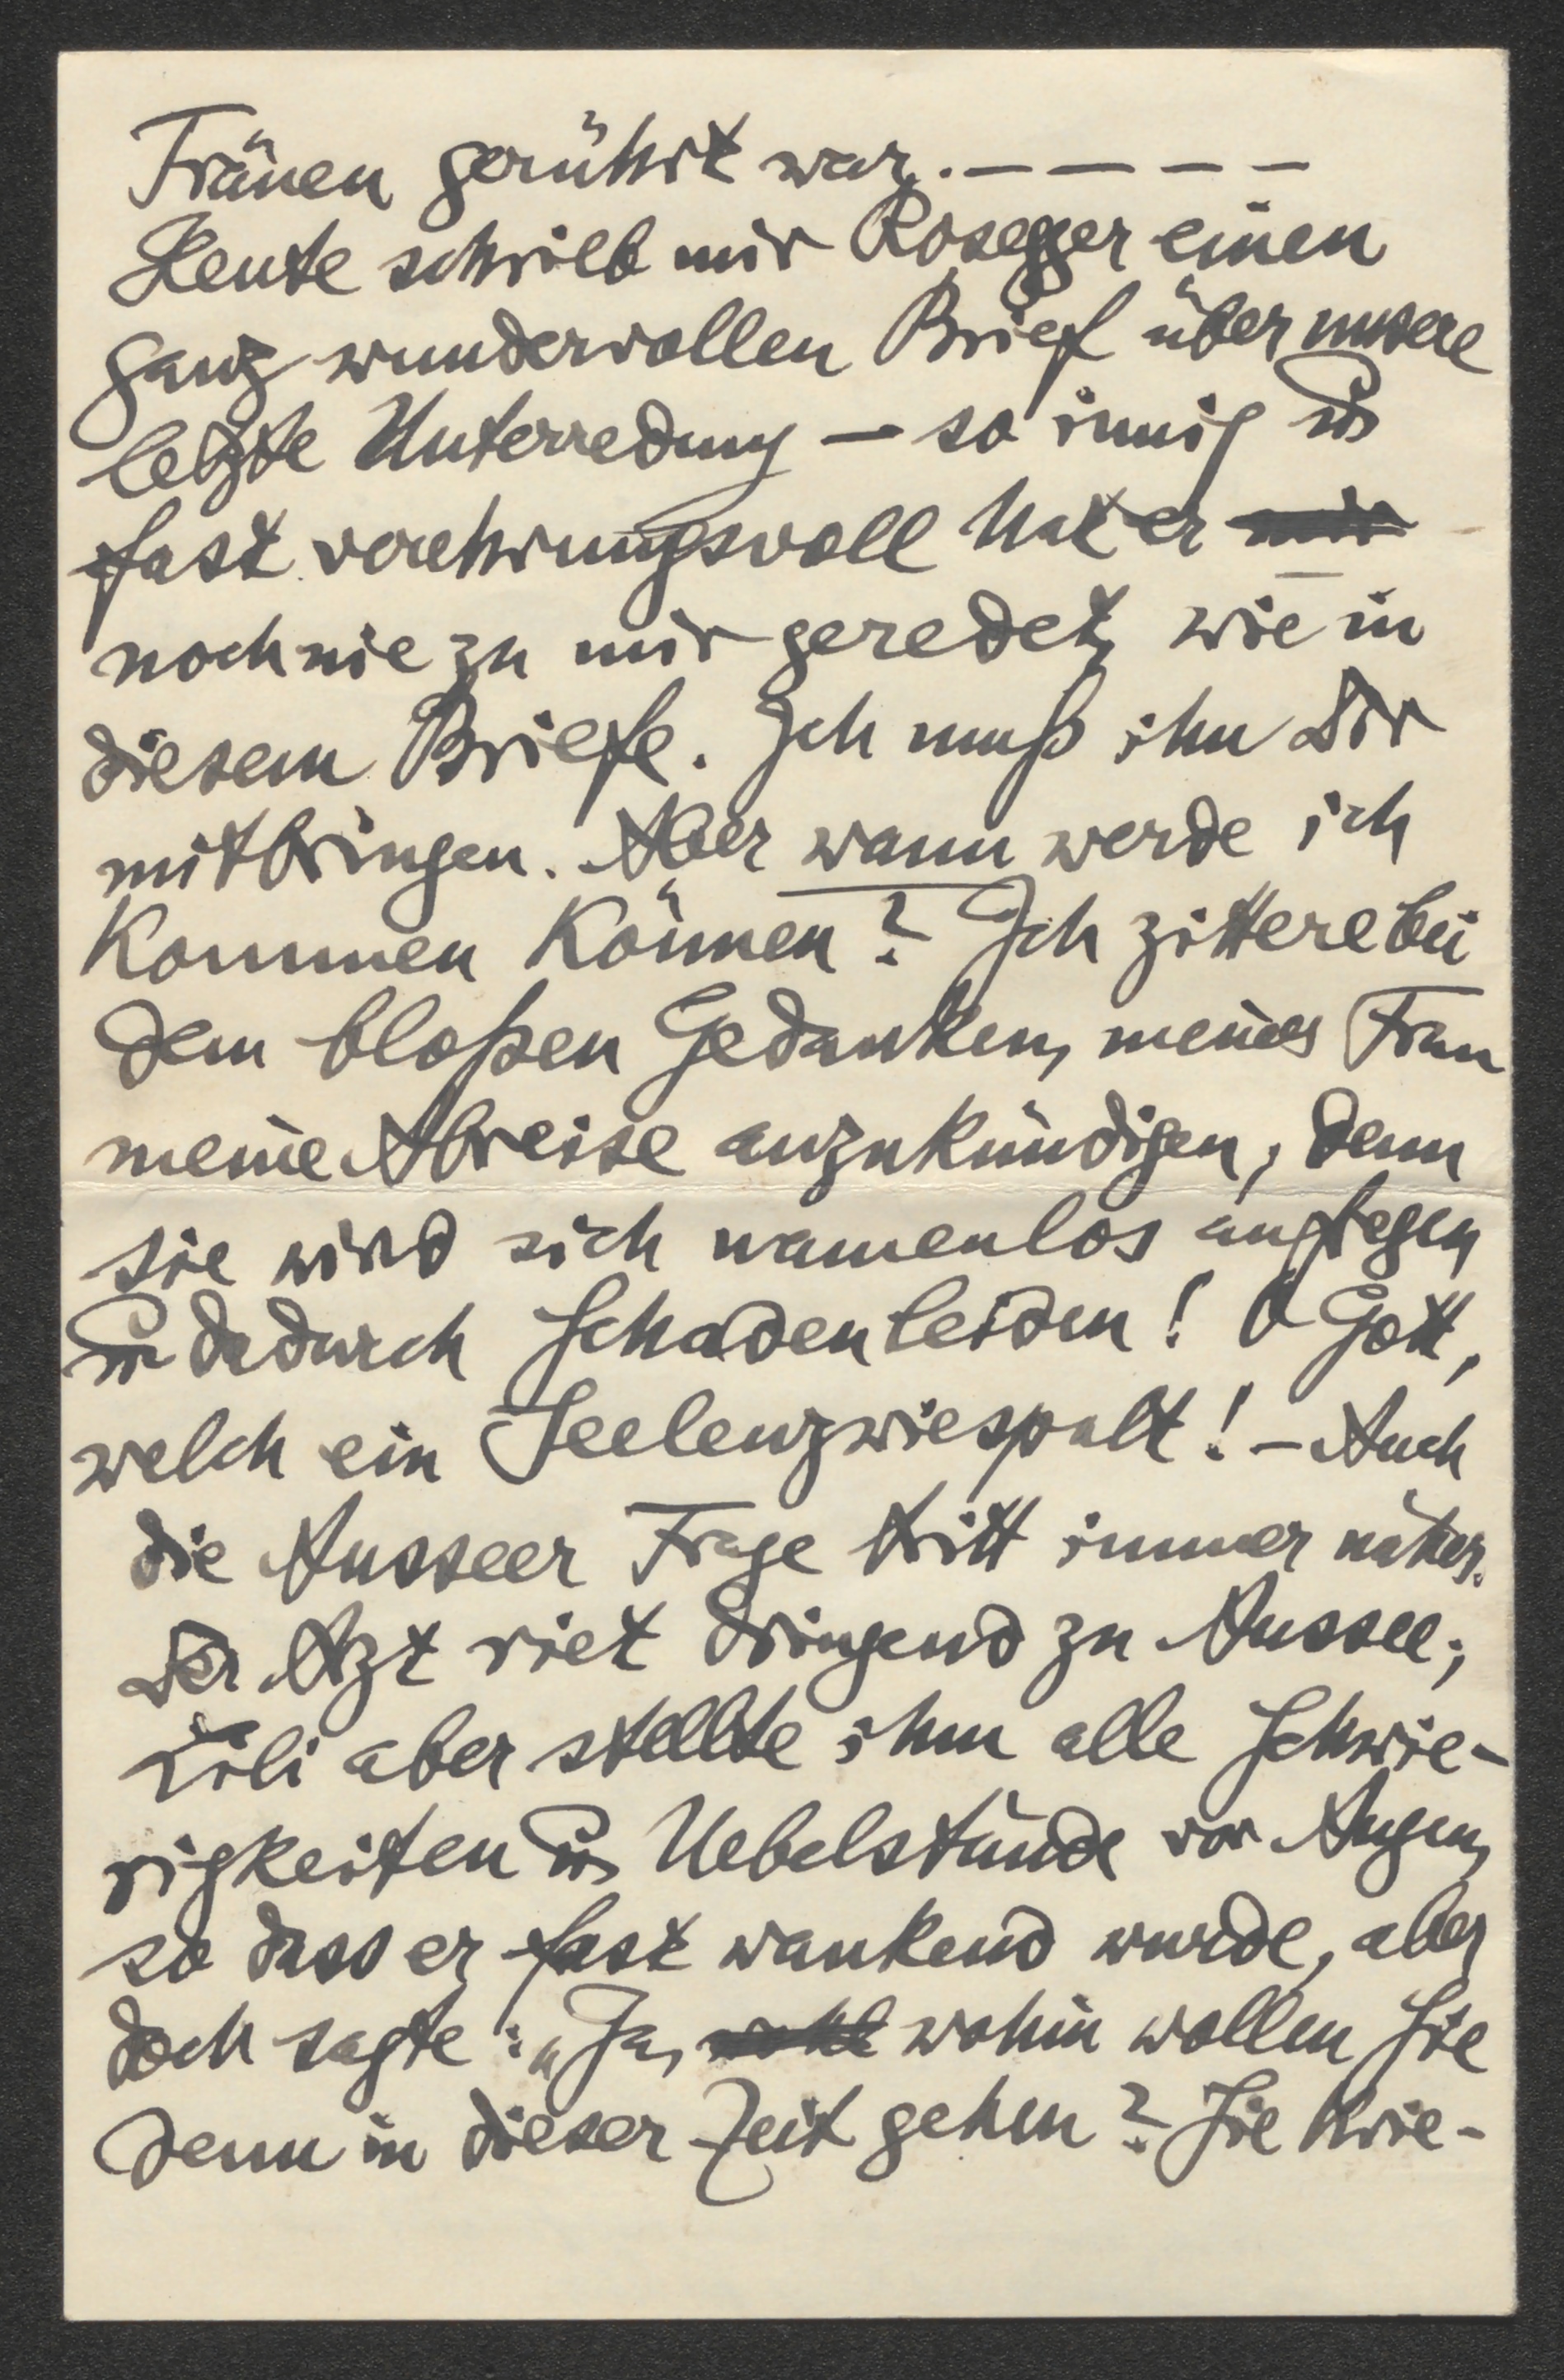 Tränen gerührt war. — — — —
Heute schrieb mir Rosegger einen
ganz wundervollen Brief über unsere
letzte Unterredung — so innig u.
fast verehrungsvoll hat er mir
noch nie zu mir geredet, wie in
diesem Briefe. Ich muß ihn Dir
mitbringen. Aber wann werde ich
kommen können? Ich zittere bei
dem bloßen Gedanken, meiner Frau
meine Abreise anzukündigen, denn
sie wird sich namenlos aufregen
u. dadurch Schaden leiden! O Gott,
welch ein Seelenzwiespalt! — Auch
die Ausseer Frage tritt immer näher.
Der Arzt riet dringend zu Aussee;
Lili aber stellte ihm alle Schwie-
rigkeiten u. Uebelstände vor Augen,
so dass er fast wankend wurde, aber
doch sagte: „Ja, wohl wohin wollen Sie
denn in dieser Zeit gehen? Sie krie-